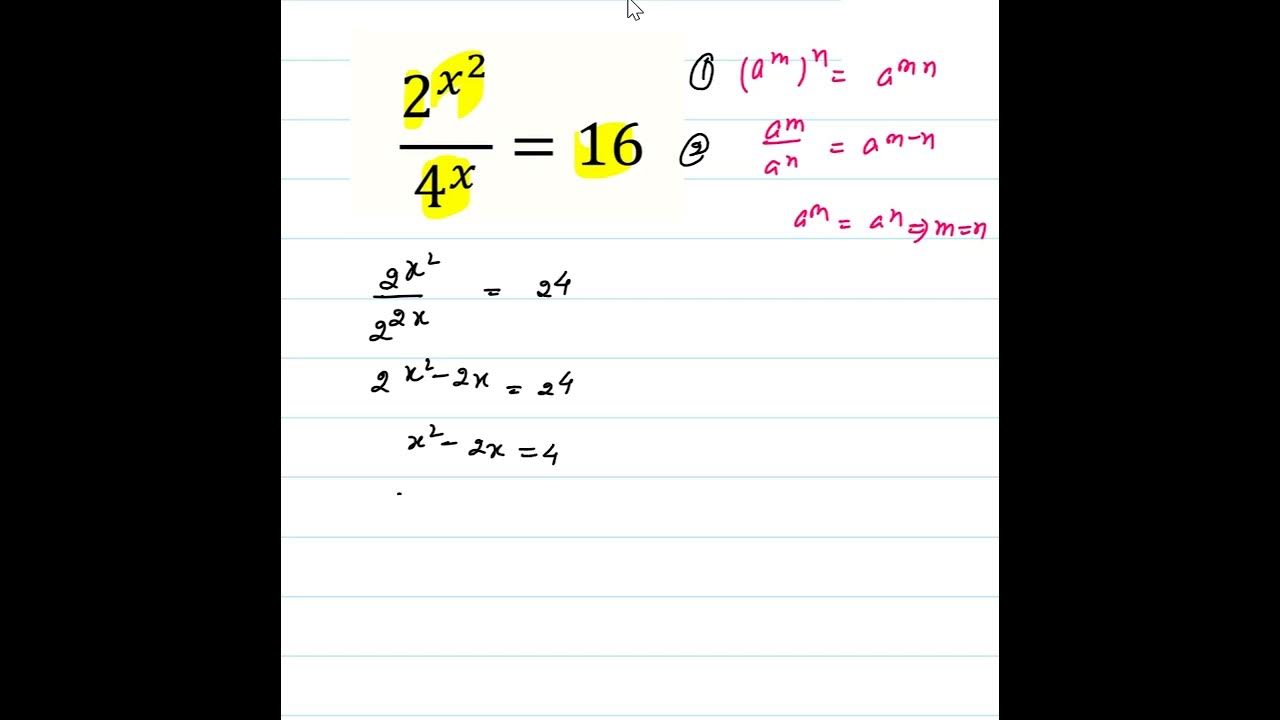 2^{x^2} / 4^x = 16
① (a^m)^n = a^{mn}
② a^m / a^n = a^{m-n}
a^m = a^n ⇒ m = n
2^{x^2} / 2^{2x} = 2^4
2^{x^2 - 2x} = 2^4
x^2 - 2x = 4